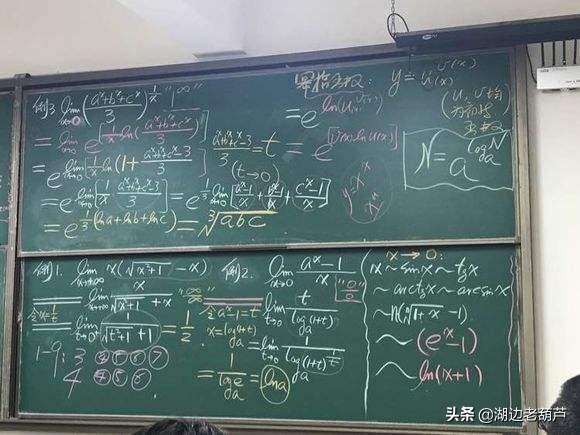 例3. lim x→0 ((a^x+b^x+c^x)/3)^(1/x) "1^∞"
= lim x→0 e^[(1/x) ln((a^x+b^x+c^x)/3)]
= e^{lim x→0 [(1/x) ln(1+(a^x+b^x+c^x-3)/3)]} (a^x+b^x+c^x-3)/3 = t (t→0)
= e^{lim x→0 [(1/x) (a^x+b^x+c^x-3)/3]} = e^{(1/3) lim x→0 [(a^x-1)/x + (b^x-1)/x + (c^x-1)/x]}
= e^{(1/3)(lna+lnb+lnc)} = ∛(abc)
幂指函数: y = u(x)^{v(x)}
= e^{ln u(x)^{v(x)}}
= e^{[v(x) ln u(x)]}
(u, v均为初等函数)
N = a^{log_a N}
y=x^x
例1. lim x→+∞ x(√(x²+1) - x)
= lim x→+∞ x/(√(x²+1) + x) "∞/∞"
令x=1/t
lim t→0+ 1/(√(t²+1) + 1) = 1/2
1-9: 3
4
例2. lim x→0 (a^x-1)/x "0/0"
令a^x-1=t
x=log_a(1+t)
lim t→0 t/log_a(1+t)
= lim t→0 1/log_a(1+t)^{1/t}
= 1/log_a e = lna
x→0:
x~sinx~tgx
~arctgx~arcsinx
~n(ⁿ√(1+x) -1)
~(e^x-1)
~ln(x+1)
头条 @湖边老葫芦